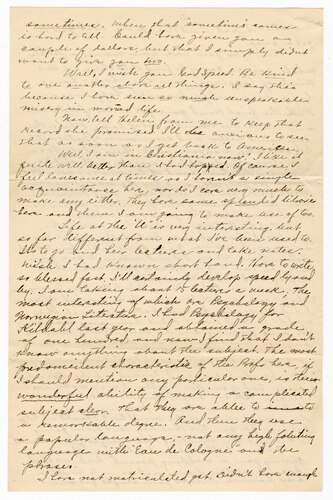 sometimes. When that sometime comes
is hard to tell. Could have given you a
couple of dollars, but that I simply didn't
want to give you two.
Well, I wish you God Speed. Be kind
to one another above all things. I say this
because I have seen so much unspeakable
misery in married life.
Now, tell Helen from me to keep that
record she promised. I'll be anxious to see
that as soon as I get back to America.
Well, I am in Christiania now. I like it
quite well, better than I had hoped. Of course I
feel lonesome at times as I haven't a single
acquaintance here, nor do I care very much to
make any either. They have some splendid libraries
here and them I am going to make use of too.
Life at the "U" is very interesting, but
so far different from what I've been used to.
It is to go and hear lectures and take notes.
Wish I had known short hand. Have to write
so blessed fast. I'll certainly develop speed by and
by. I am taking about 15 lectures a week, the
most interesting of which are Psychology and
Norwegian Literature. I had Psychology for
Kildahl last year and obtained a grade
of one hundred, and now I find that I don't
know anything about the subject. The most
predominent characteristic of the Profs here, if
I should mention any particular one, is their
wonderful ability of making a complicated
subject clear. That they are able to
a remarkable degree. And then they use
a popular language, - not any high faluting
language with "Eau de Cologne" and
phrases.
I have not matriculated yet. Didn't have enough